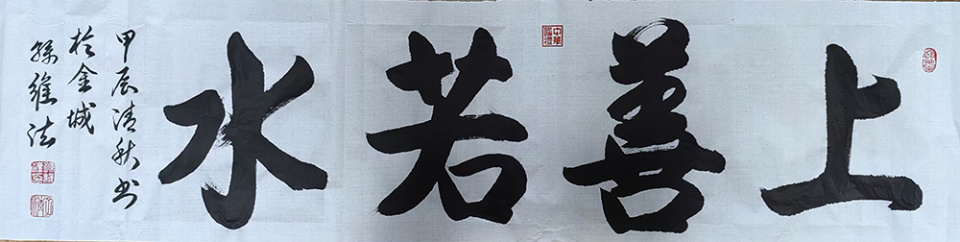 上善若水
甲辰清秋书
于金城
孙维法